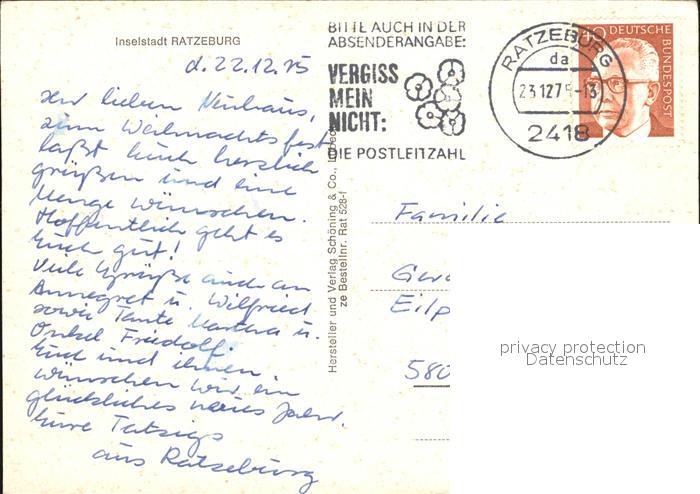 Inselstadt RATZEBURG
BITTE AUCH IN DER
ABSENDERANGABE:
VERGISS
MEIN
NICHT:
DIE POSTLEITZAHL
RATZEBURG
da
23.12.75-13
2418
DEUTSCHE
BUNDESPOST
d. 22.12.75
Ihr lieben Neuhaus,
zum Weihnachtsfest
laßt Euch herzlich
grüßen und eine
Menge wünschen.
Hoffentlich geht es
Euch gut!
Viele Grüße auch an
Annegret u. Wilfried
sowie Tante Martha u.
Onkel Friedolf.
Euch und ihnen
wünschen wir ein
glückliches neues Jahr.
Eure
aus Ratzeburg
Hersteller und Verlag Schöning & Co., Lübeck
ze Bestellnr. Rat 528-f
Familie
Ger
Eilp
580
privacy protection
Datenschutz